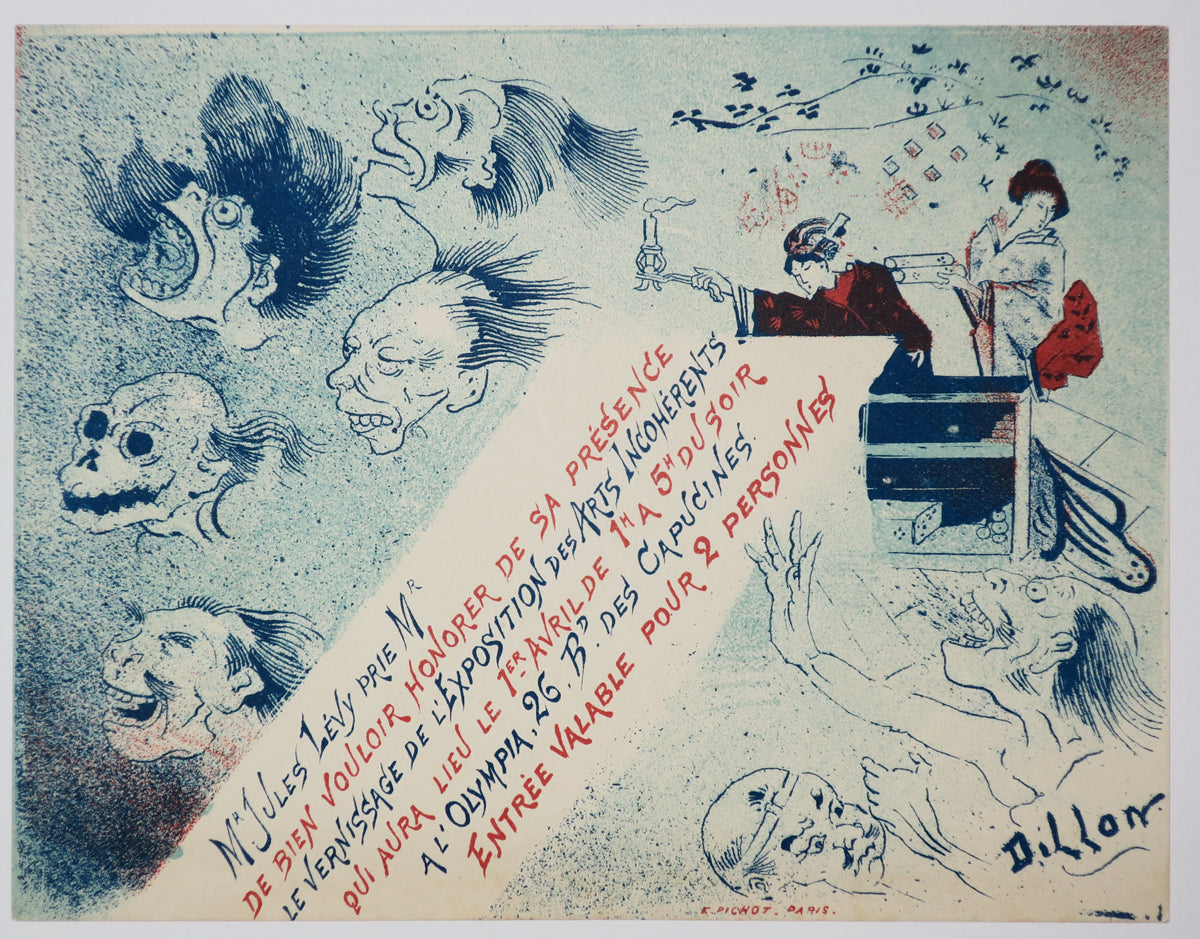 Mr JULES LÉVY PRIE MR
DE BIEN VOULOIR HONORER DE SA PRÉSENCE
LE VERNISSAGE DE L'EXPOSITION DES ARTS INCOHÉRENTS
QUI AURA LIEU LE 1ER AVRIL DE 1H A 5H DU SOIR
A L'OLYMPIA, 26, Bd DES CAPUCINES.
ENTRÉE VALABLE POUR 2 PERSONNES
Dillon
E. PICHOT. PARIS.